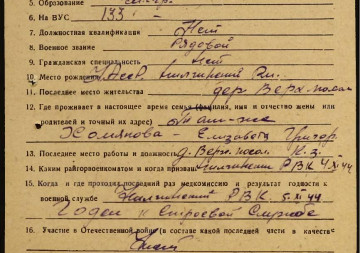 5. Образование
6. На ВУС 133 —
7. Должностная квалификация Нет
8. Военное звание Рядовой
9. Гражданская специальность Нет
10. Место рождения
11. Последнее место жительства дер. Верх.
12. Где проживает в настоящее время семья (фамилия, имя и отчество жены или
родителей и точный их адрес) Там-же
Хомякова — Елизавета Григор.
13. Последнее место работы и должность К-з.
14. Каким райгорвоенкоматом и когда призван РВК XI 44
15. Когда и где проходил последний раз медкомиссию и результат годности к
военной службе РВК 5.XI 44
Годен к строевой службе
16. Участие в Отечественной войне (в составе какой последней части в качестве
Нет